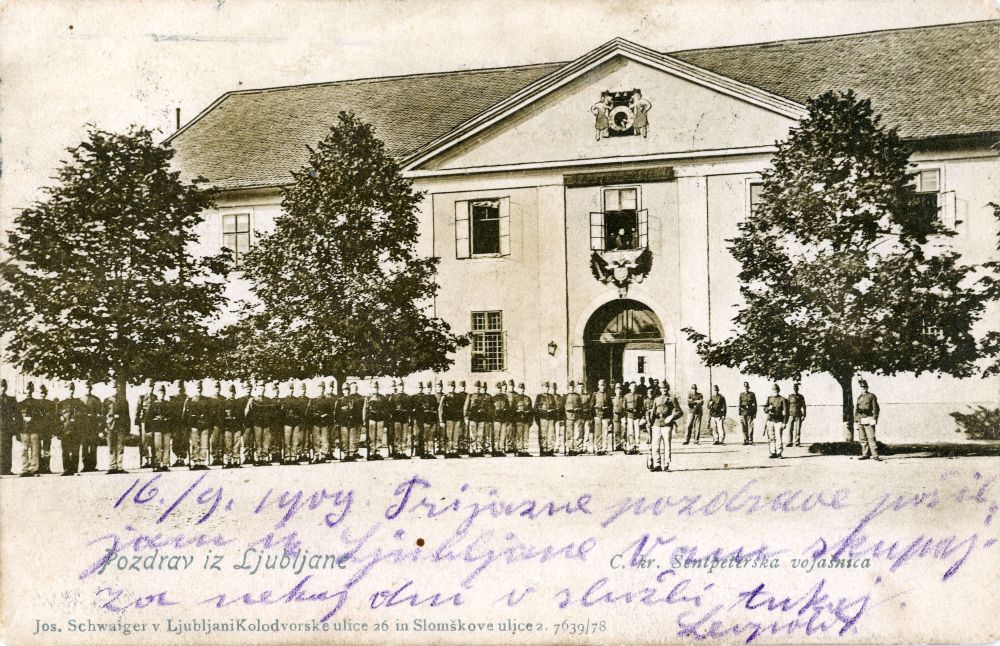 16./9. 1909. Prijazne pozdrave pošil-
jam iz Ljubljane Vam skupaj-
Pozdrav iz Ljubljane
C. kr. Šentpeterska vojašnica
za nekej dni v službi tukej.
Leopold.
Jos. Schwaiger v Ljubljani Kolodvorske ulice 26 in Slomškove uljce 2. 7639/78